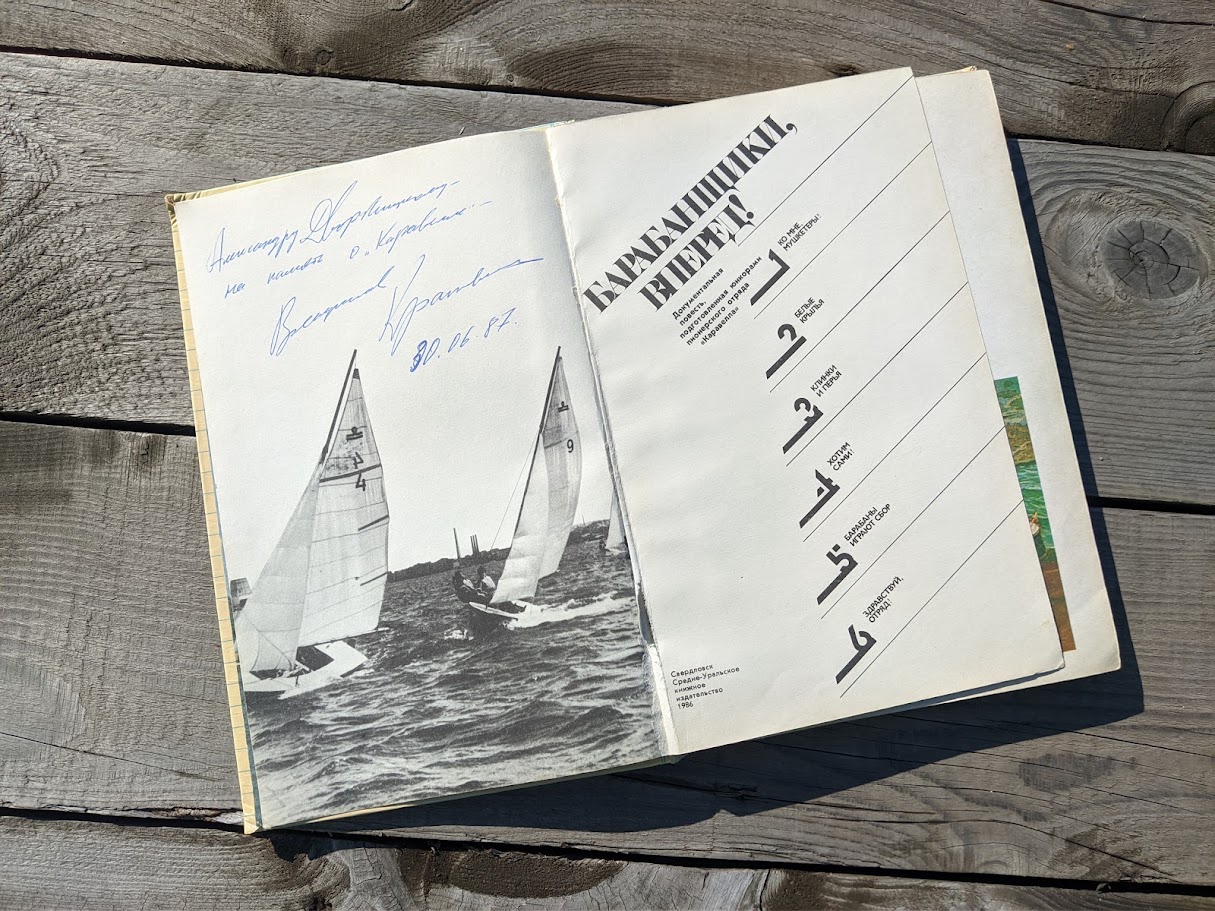 Александру Дворянцеву –
на память о „Каравелле" –
Владислав Крапивин
30.06.87.
4
9
БАРАБАНЩИКИ,
ВПЕРЕД!
Документальная
повесть,
подготовленная юнкорами
пионерского отряда
«Каравелла»
1
КО МНЕ,
МУШКЕТЕРЫ!
2
БЕЛЫЕ
КРЫЛЬЯ
3
КЛИНКИ
И ПЕРЬЯ
4
ХОТИМ
САМИ!
5
БАРАБАНЫ
ИГРАЮТ СБОР
6
ЗДРАВСТВУЙ,
ОТРЯД!
Свердловск
Средне-Уральское
книжное
издательство
1986